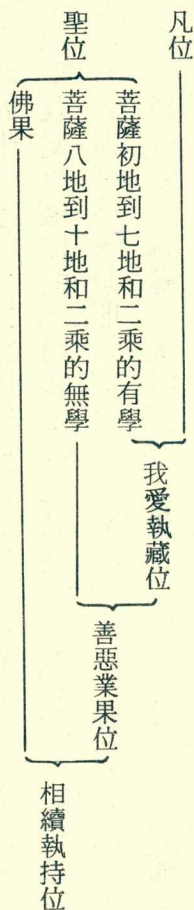 凡位
聖位
菩薩初地到七地和二乘的有學
菩薩八地到十地和二乘的無學
佛果
我愛執藏位
善惡業果位
相續執持位